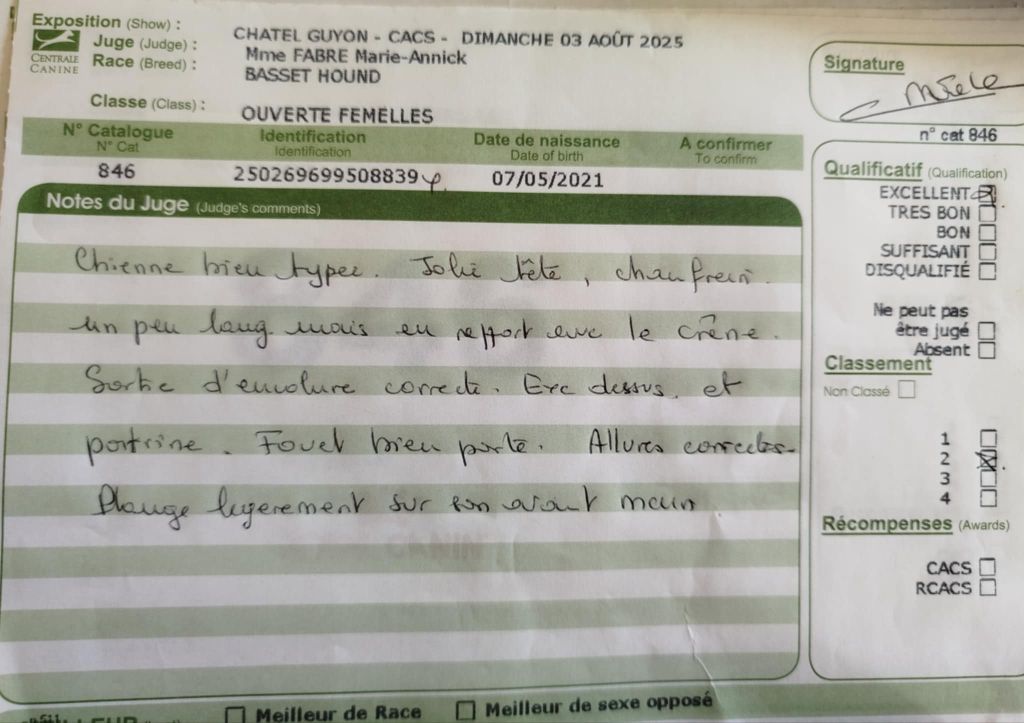 Exposition (Show) : CHATEL GUYON - CACS - DIMANCHE 03 AOÛT 2025
CENTRALE CANINE
Juge (Judge) : Mme FABRE Marie-Annick
Race (Breed) : BASSET HOUND
Classe (Class) : OUVERTE FEMELLES
N° Catalogue Identification Date de naissance A confirmer
N° Cat Identification Date of birth To confirm
846 250269699508839 07/05/2021
Notes du Juge (Judge's comments)
Chienne bien typée. Jolie tête, chanfrein
un peu long mais en rapport avec le crâne.
Sortie d'encolure correcte. Exc dessus, et
poitrine. Fouet bien porté. Allures correctes.
Plonge légerement sur son avant main
Signature
n° cat 846
Qualificatif (Qualification)
EXCELLENT
TRES BON
BON
SUFFISANT
DISQUALIFIÉ
Ne peut pas
être jugé
Absent
Classement
Non Classé
1
2
3
4
Récompenses (Awards)
CACS
RCACS
Meilleur de Race Meilleur de sexe opposé